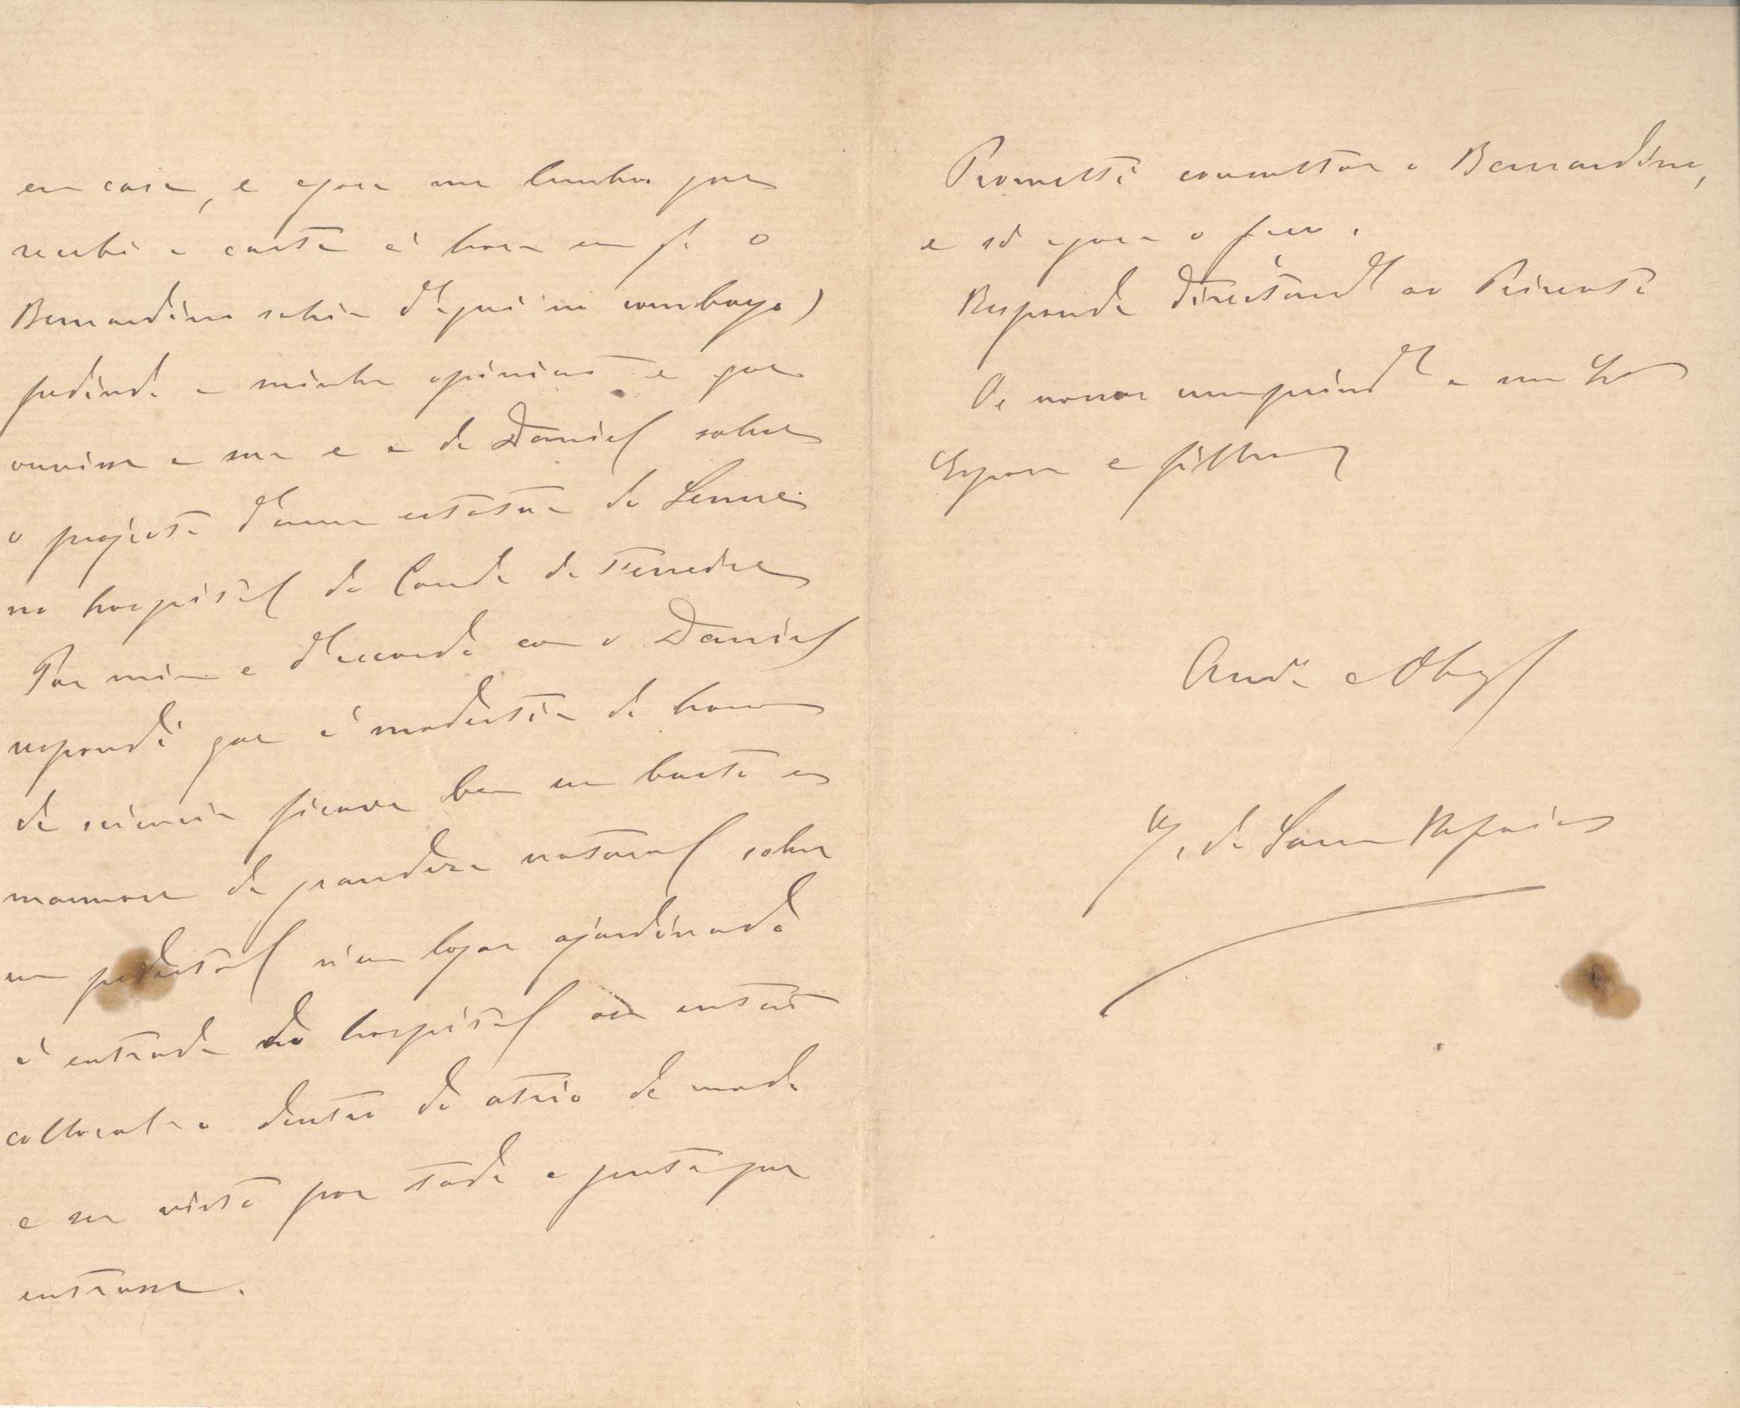 em casa, e agora me lembra que
recebi a carta á hora em q. o
Bernardino sahia d'aqui no comboyo)
pedindo a minha opinião e que
ouvisse a sua e a do Daniel sobre
o projecto d'uma estatua do
no hospital do Conde de Ferreira
Por mim e d'accordo com o Daniel
respondi que á modestia do homem
de sciencia ficava bem um busto em
marmore de grandeza natural sobre
um pedestal n'um logar ajardinado
á entrada do hospital ou então
collocal-o dentro do atrio de modo
a ser visto por toda a gente que
entrasse.
Prometti consultar o Bernardino,
e só agora o faço.
Responda directamte ao
Os nossos cumprimtos a sua Exma
Esposa e filhos
Amo e Obrgo
de Souza Refoios